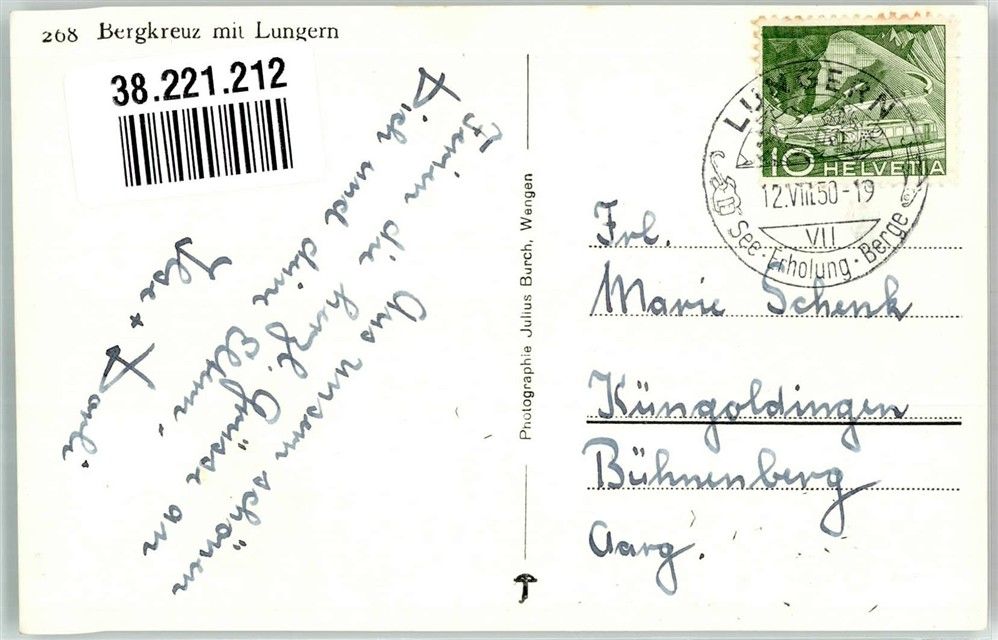 268 Bergkreuz mit Lungern
38.221.212
Aus unsern schönen
Ferien die herzl. Grüsse an
Dich und deine Eltern.
Ilse +
Photographie Julius Burch, Wengen
10 HELVETIA
LUNGERN
12.VIII.50-19
VII
See·Erholung·Berge
Frl.
Marie Schenk
Küngoldingen
Bühnenberg
Aarg.